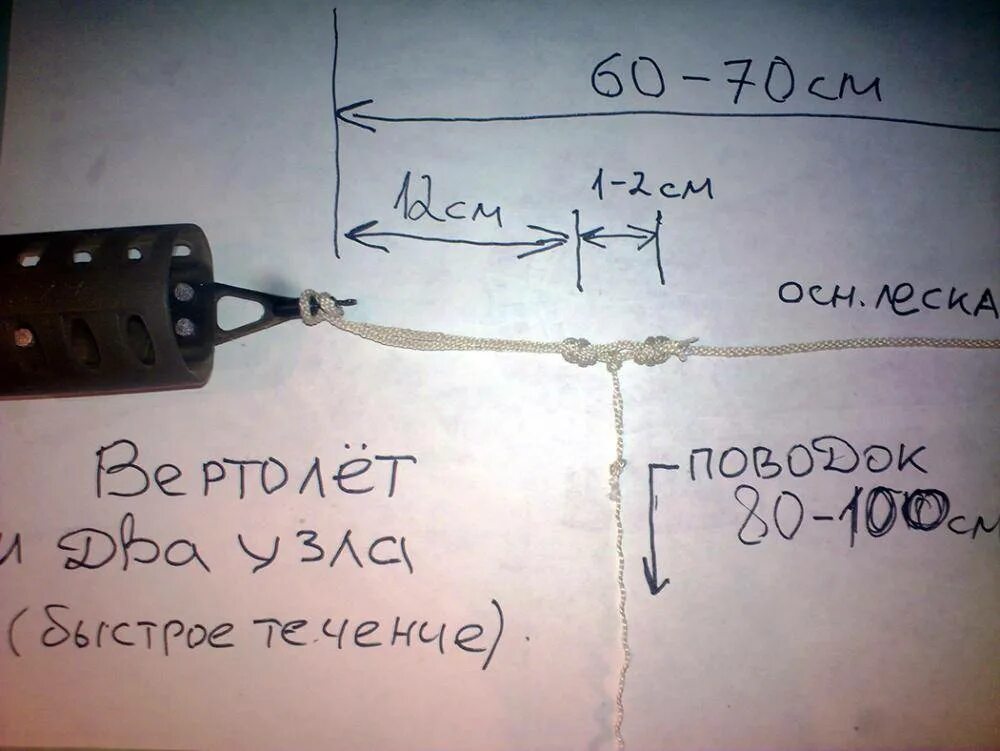 60-70см
12см
1-2см
осн. леска
Вертолёт
и два узла
(быстрое течение).
поводок
80-100см